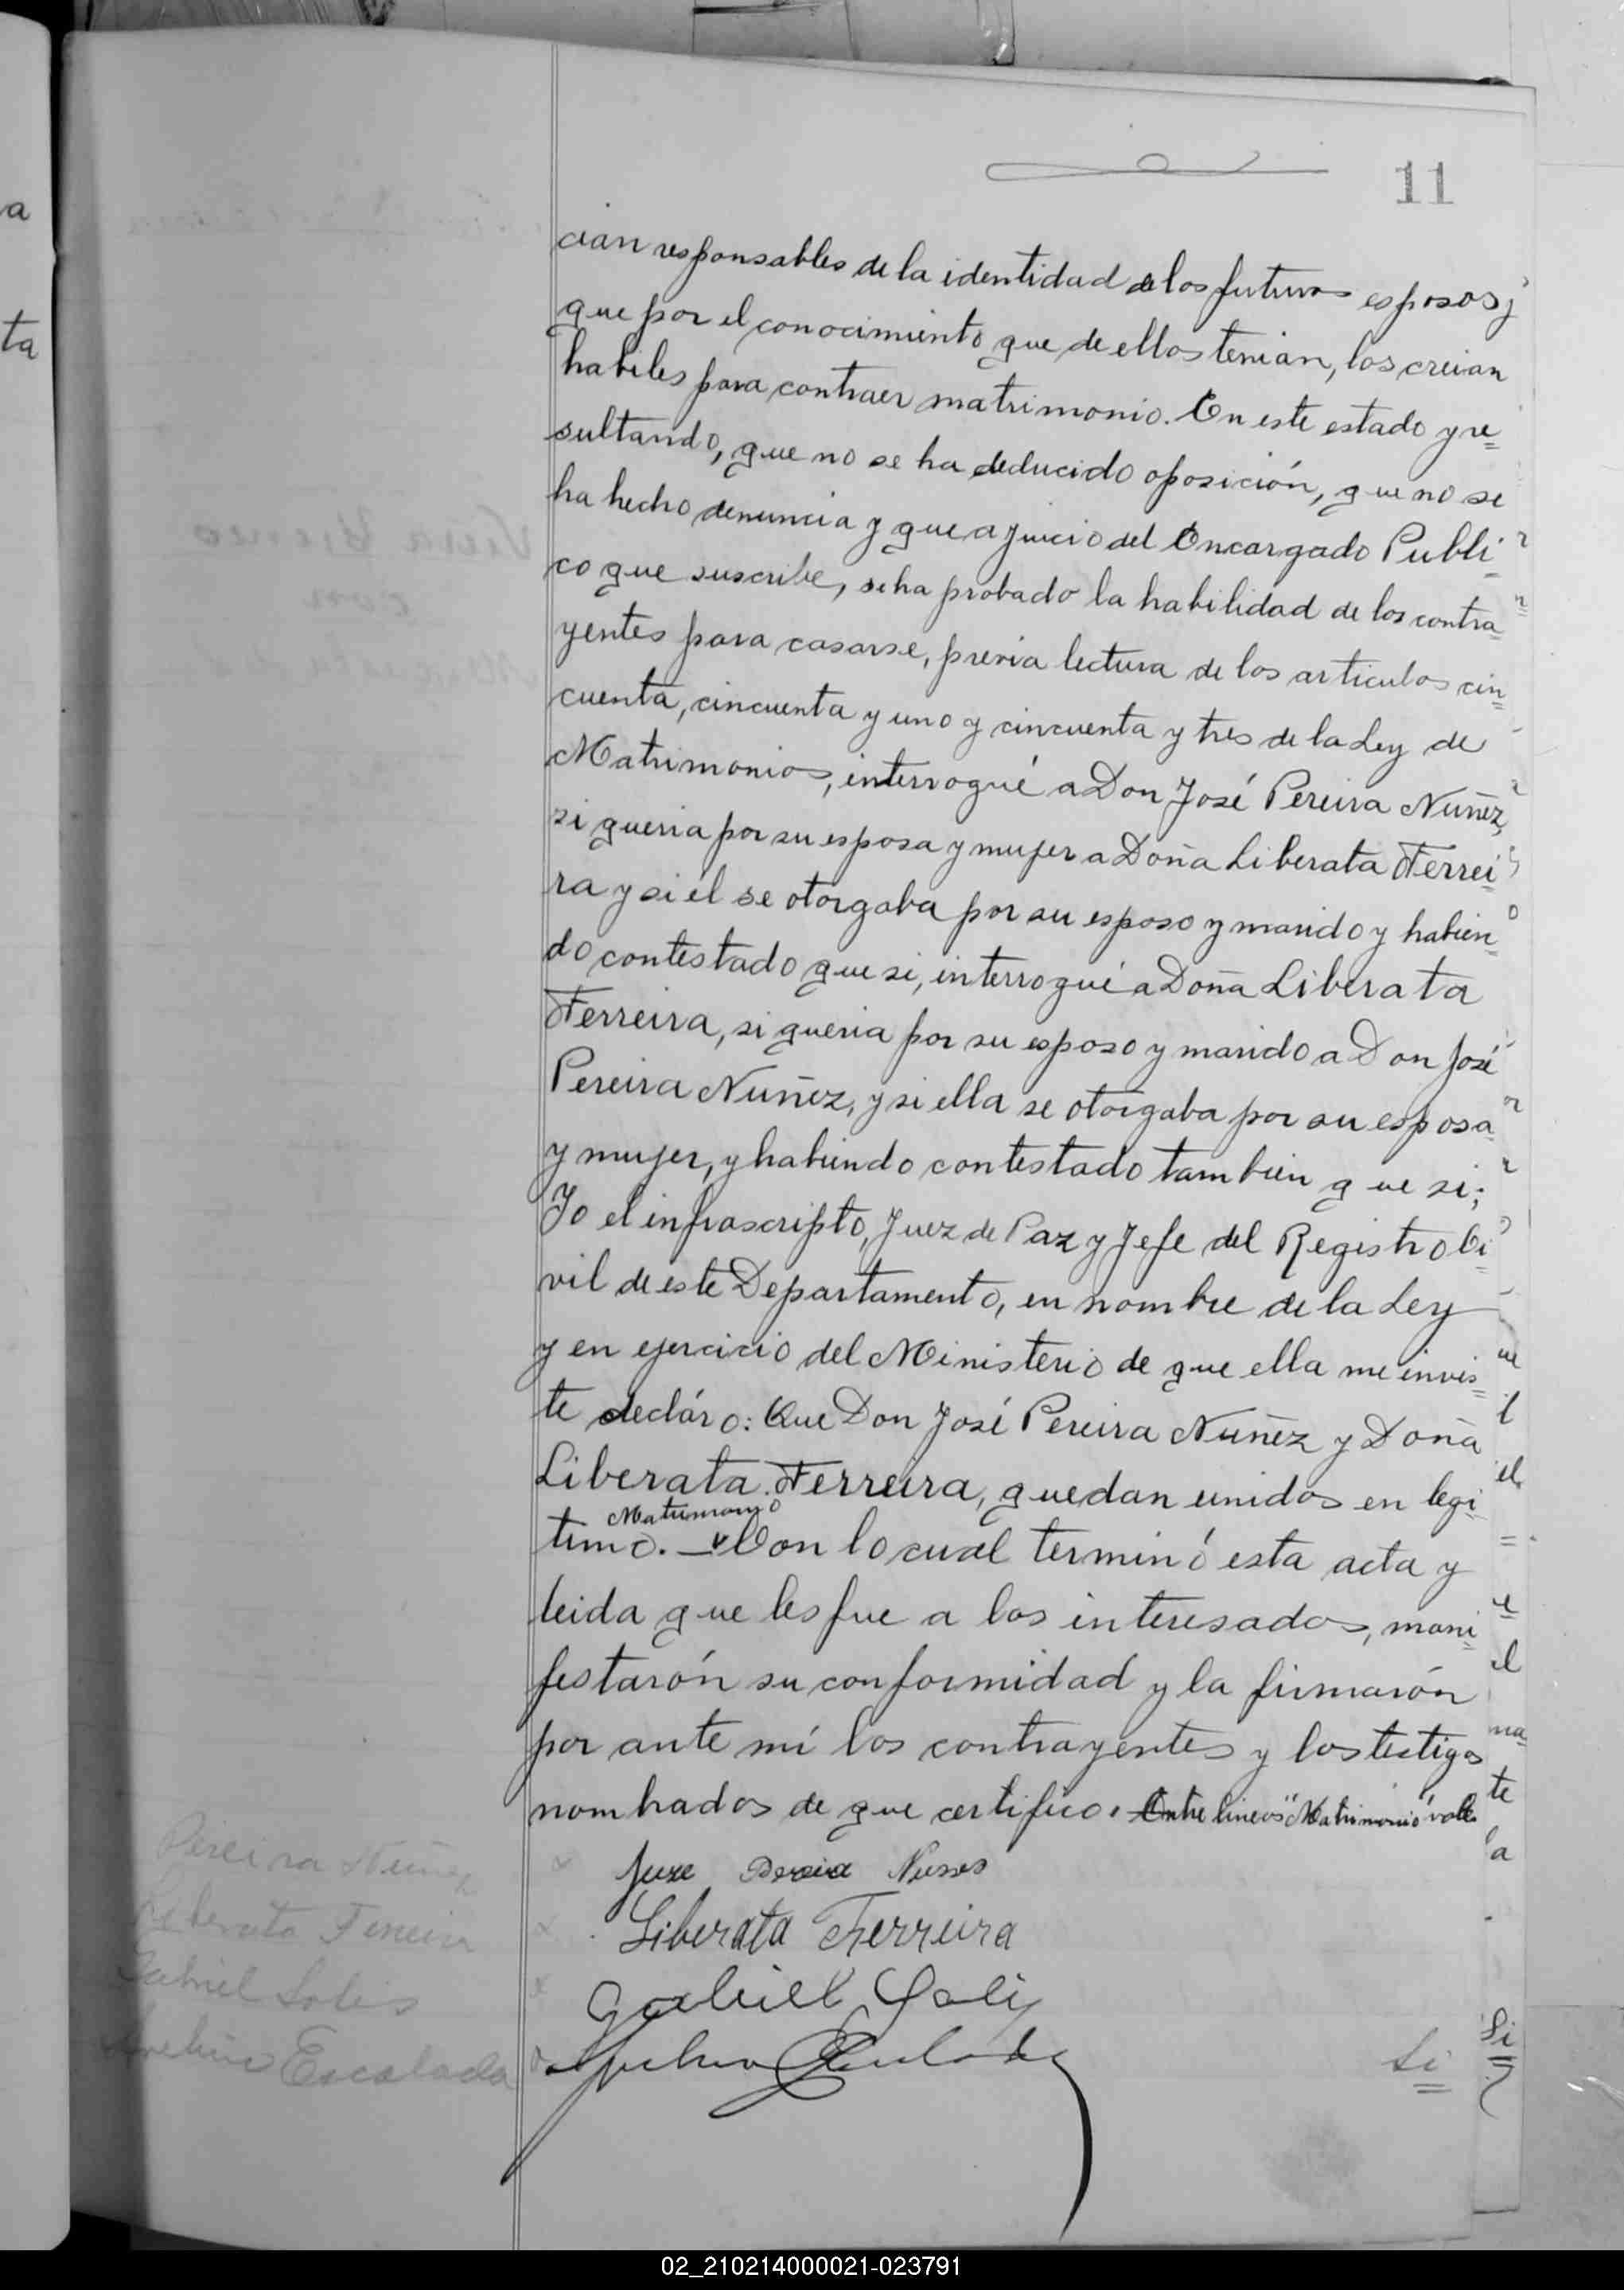 11
cian responsables de la identidad de los futuros esposos y
que por el conocimiento que de ellos tenian, los creian
habiles para contraer matrimonio. En este estado y re=
sultando, que no se ha deducido oposición, que no se
ha hecho denuncia y que a juicio del Encargado Publi=
co que suscribe, se ha probado la habilidad de los contra=
yentes para casarse, previa lectura de los articulos cin=
cuenta, cincuenta y uno y cincuenta y tres de la Ley de
Matrimonios, interrogué a Don José Pereira Nuñez,
si queria por su esposa y mujer a Doña Liberata Ferrei=
ra y si él se otorgaba por su esposo y marido y habien=
do contestado que si, interrogué a Doña Liberata
Ferreira, si queria por su esposo y marido a Don José
Pereira Nuñez, y si ella se otorgaba por su esposa
y mujer, y habiendo contestado tambien que si;
Yo el infrascripto, Juez de Paz y Jefe del Registro Ci=
vil de este Departamento, en nombre de la Ley
y en ejercicio del Ministerio de que ella me invis=
te decláro: Que Don José Pereira Nuñez y Doña
Liberata Ferreira, quedan unidos en legi=
Matrimonio
timo. — Con lo cual terminó esta acta y
leida que les fue a los interesados, mani=
festarón su conformidad y la firmarón
por ante mí los contrayentes y los testigos
nombrados de que certifico. Entre lineas "Matrimonio" vale
Pereira Nuñez
Liberata Ferreira
Gabriel Solis
Avelino Escalada
Liberata Ferreira
Gabriel Solis
Si
Si
02_210214000021-023791